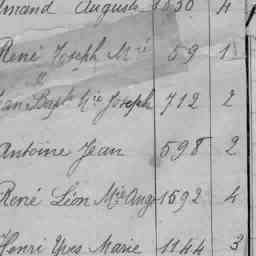 mand Auguste 1830 4
René Joseph Mie 59 1
Jean Bapte Mie Joseph 712 2
Antoine Jean 598 2
René Léon Mie Aug 1592 4
Henri Yves Marie 1144 3